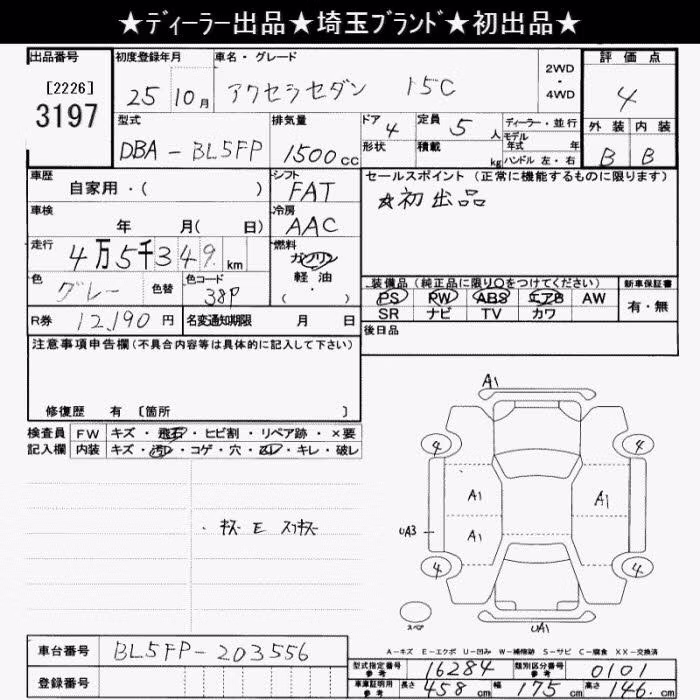 ★ディーラー出品★埼玉ブランド★初出品★
出品番号
[2226]
3197
初度登録年月
25 10月
車名・グレード
アクセラセダン 15C
2WD
・
4WD
評価点
4
外装 内装
B B
型式
DBA-BL5FP
排気量
1500cc
ドア 4
形状
定員 5 人
積載 kg
ディーラー・並行
モデル
年式 年
ハンドル 左・右
車歴
自家用・( )
シフト
FAT
セールスポイント(正常に機能するものに限ります)
☆初出品
車検
年 月( 日)
冷房
AAC
走行
4万5千349km
燃料
ガソリン
軽油
・
( )
色
グレー
色替
色コード
38P
装備品(純正品に限り○をつけてください)
PS PW ABS エアB AW
SR ナビ TV カワ
新車保証書
有・無
R券 12,190円
名変通知期限 月 日
後日品
注意事項申告欄(不具合内容等は具体的に記入して下さい)
修復歴 有 [箇所 ]
検査員
記入欄
FW キズ・飛石・ヒビ割・リペア跡・×要
内装 キズ・汚れ・コゲ・穴・スレ・キレ・破レ
・キズ E スリキズ
A1
4 4
A1 A1
UA3 A1
4 4
スペア
UA1
A-キズ E-エクボ U-凹み W-補修跡 S-サビ C-腐食 XX-交換済
車台番号 BL5FP-203556
登録番号
型式指定番号
参考
16284
類別区分番号
参考
0101
車庫証明用
参考
長さ 458cm 幅 175cm 高さ 146cm